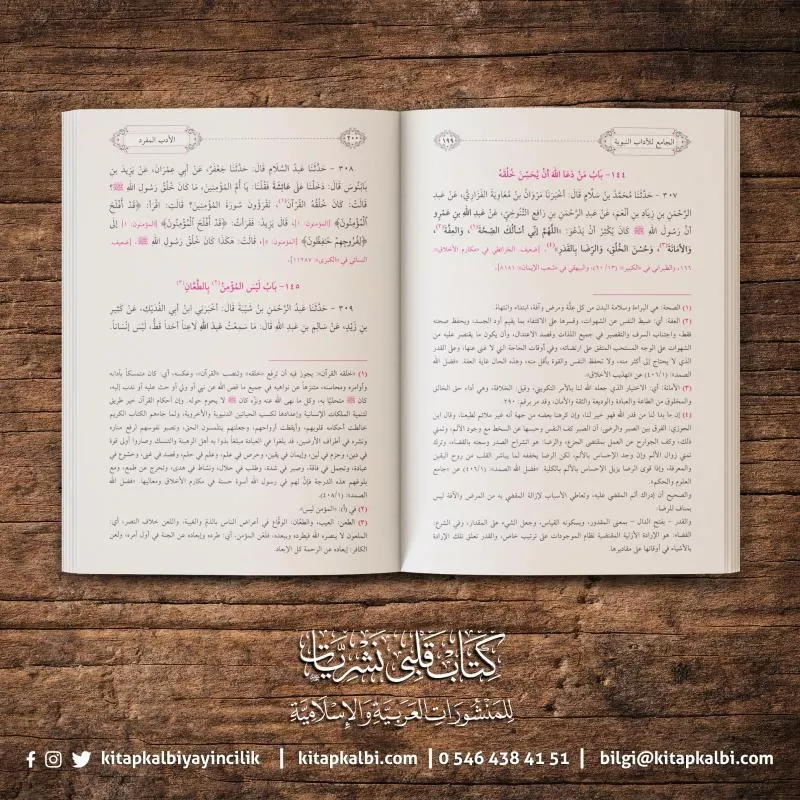 الجامع للآداب النبوية
١٩٩
١٤٤- بَابُ مَنْ دَعَا اللهَ أَنْ يُحَسِّنَ خُلُقَهُ
٣٠٧ - حَدَّثَنَا مُحَمَّدُ بنُ سَلَامٍ قَالَ: أَخْبَرَنَا مَرْوَانُ بنُ مُعَاوِيَةَ الفَزَارِيُّ، عَنْ عَبدِ
الرَّحْمَنِ بنِ زِيَادِ بنِ أَنْعُم، عَنْ عَبدِ الرَّحْمَنِ بنِ رَافِعٍ التَّنُوخِيِّ، عَنْ عَبدِ اللهِ بنِ عَمْرٍو
أَنَّ رَسُولَ اللهِ ﷺ كَانَ يُكْثِرُ أَنْ يَدْعُوَ: «اللَّهُمَّ إِنِّي أَسْأَلُكَ الصِّحَّةَ(١)، وَالعِفَّةَ(٢)،
وَالأَمَانَةَ(٣)، وَحُسْنَ الخُلُقِ، وَالرِّضَا بِالقَدَرِ»(٤). [ضعيف. الخرائطي في «مكارم الأخلاق»:
١٦٦، والطبراني في «الكبير»: (١٣/ ٦٠)، والبيهقي في «شعب الإيمان»: ٨١٨١].
(١) الصحة: هي البراءة وسلامة البدن من كل علَّة ومرض وآفة، ابتداء وانتهاءً.
(٢) العفة: أي: ضبط النفس عن الشهوات، وقسرها على الاكتفاء بما يقيم أود الجسد، ويحفظ صحته
فقط، واجتناب السرف والتقصير في جميع اللذات وقصد الاعتدال، وأن يكون ما يقتصر عليه من
الشهوات على الوجه المستحب المتفق على ارتضائه، وفي أوقات الحاجة التي لا غنى عنها، وعلى القدر
الذي لا يحتاج إلى أكثر منه، ولا تحفظ النفس والقوة بأقل منه، وهذه الحال غاية العفة. «فضل الله
الصمد»: (٤٠٦/١) عن «تهذيب الأخلاق».
(٣) الأمانة: أي: الاختيار الذي جعله الله لنا بالأمر التكويني، وقبول الخلافة، وهي أداء حق الخالق
والمخلوق من الطاعة والعبادة والوديعة والثقة والأمان، وقد مر برقم: ٢٩٠.
(٤) إن ما بدا لنا من قدر الله فهو خير لنا، وإن كرهنا بعضه من جهة أنه غير ملائم لطبعنا، وقال ابن
الجوزي: الفرق بين الصبر والرضى: أن الصبر كف النفس وحبسها عن السخط مع وجود الألم، وتمني
ذلك، وكف الجوارح عن العمل بمقتضى الجزع، والرضا: هو انشراح الصدر وسعته بالقضاء، وترك
تمني زوال الألم وإن وجد الإحساس بالألم، لكن الرضا يخففه لما يباشر القلب من روح اليقين
والمعرفة، وإذا قوى الرضا يزيل الإحساس بالألم بالكلية. «فضل الله الصمد»: (٤٠٦/١) عن «جامع
العلوم والحكم».
والصحيح أن إدراك ألم المقضي عليه، وتعاطي الأسباب لإزالة المقضي به من المرض والآفة ليس
بمناف للرضا.
والقدر - بفتح الدال - بمعنى المقدور، وبسكونه القياس، وجعل الشيء على المقدار، وفي الشرع:
القضاء: هو الإرادة الأزلية المقتضية نظام الموجودات على ترتيب خاص، والقدر تعلق تلك الإرادة
بالأشياء في أوقاتها على مقاديرها.
٢٠٠
الأدب المفرد
٣٠٨ - حَدَّثَنَا عَبدُ السَّلَامِ قَالَ: حَدَّثَنَا جَعْفَرٌ، عَنْ أَبِي عِمْرَانَ، عَنْ يَزِيدَ بنِ
بَابَنُوسَ قَالَ: دَخَلْنَا عَلَى عَائِشَةَ فَقُلْنَا: يَا أُمَّ المُؤْمِنِينَ، مَا كَانَ خُلُقُ رَسُولِ اللهِ ﷺ؟
قَالَتْ: كَانَ خُلُقُهُ القُرْآنَ(١)، تَقْرَؤُونَ سُورَةَ المُؤْمِنِينَ؟ قَالَتْ: اقْرَأْ: ﴿قَدْ أَفْلَحَ
الْمُؤْمِنُونَ﴾ [المؤمنون: ١]، قَالَ يَزِيدُ: فَقَرَأْتُ: ﴿قَدْ أَفْلَحَ الْمُؤْمِنُونَ﴾ [المؤمنون: ١] إِلَى
﴿لِفُرُوجِهِمْ حَافِظُونَ﴾ [المؤمنون: ٥]، قَالَتْ: هَكَذَا كَانَ خُلُقُ رَسُولِ اللهِ ﷺ. [ضعيف.
النسائي في «الكبرى»: ١١٢٨٧].
١٤٥- بَابُ لَيْسَ المُؤْمِنُ(٢) بِالطَّعَّانِ(٣)
٣٠٩ - حَدَّثَنَا عَبدُ الرَّحْمَنِ بنُ شَيْبَةَ قَالَ: أَخْبَرَنِي ابنُ أَبِي الفُدَيْكِ، عَنْ كَثِيرِ
بنِ زَيْدٍ، عَنْ سَالِمِ بنِ عَبدِ اللهِ قَالَ: مَا سَمِعْتُ عَبدَ اللهِ لَاعِناً أَحَداً قَطُّ، لَيْسَ إِنْسَاناً.
(١) «خلقه القرآن»: يجوز فيه أن ترفع «خلقه» وتنصب «القرآن»، وعكسه، أي: كان متمسكاً بآدابه
وأوامره ومحاسنه، متنزهاً عن نواهيه في جميع ما قص الله عن نبي أو ولي أو حث عليه أو ندب إليه،
كان ﷺ متحلياً به، وكل ما نهى الله عنه ونزَّه كان ﷺ لا يحوم حوله. وإن أحكام القرآن خير طريق
لتنمية الملكات الإنسانية وإعدادها لكسب الحياتين الدنيوية والأخروية، ولما جاءهم الكتاب الكريم
خالطت أحكامه قلوبهم، وأيقظت أرواحهم، وجعلتهم يتلمسون الحق، وتصبو نفوسهم لرفع مناره
ونشره في أطراف الأرضين، قد بلغوا في العبادة مبلغاً بذوا به أهل الرهبنة والتنسك وصاروا أولى قوة
في دين، وحزم في لين، وإيمان في يقين، وحرص في علم، وعلم في حلم، وقصد في غنى، وخشوع في
عبادة، وتجمل في فاقة، وصبر في شدة، وطلب في حلال، ونشاط في هدى، وتحرج عن طمع، ومع
بلوغهم هذه الدرجة فإنَّ لهم في رسول الله أسوة حسنة في مكارم الأخلاق ومعاليها. «فضل الله
الصمد»: (٤٠٨/١).
(٢) في (أ): «المؤمن ليس».
(٣) الطعن: العيب، والطعَّان: الوقَّاع في أعراض الناس بالذمِّ والغيبة، واللعن خلاف النصر، أي:
الملعون لا ينصره الله فيطرده ويبعده، فلَعْن المؤمن، أي: طرده وإبعاده عن الجنة في أول أمره؛ ولعن
الكافر: إبعاده عن الرحمة كل الإبعاد.
كتاب قلبي نشريات
للمنشورات العربية والإسلامية
kitapkalbiyayincilik | kitapkalbi.com | 0 546 438 41 51 | bilgi@kitapkalbi.com